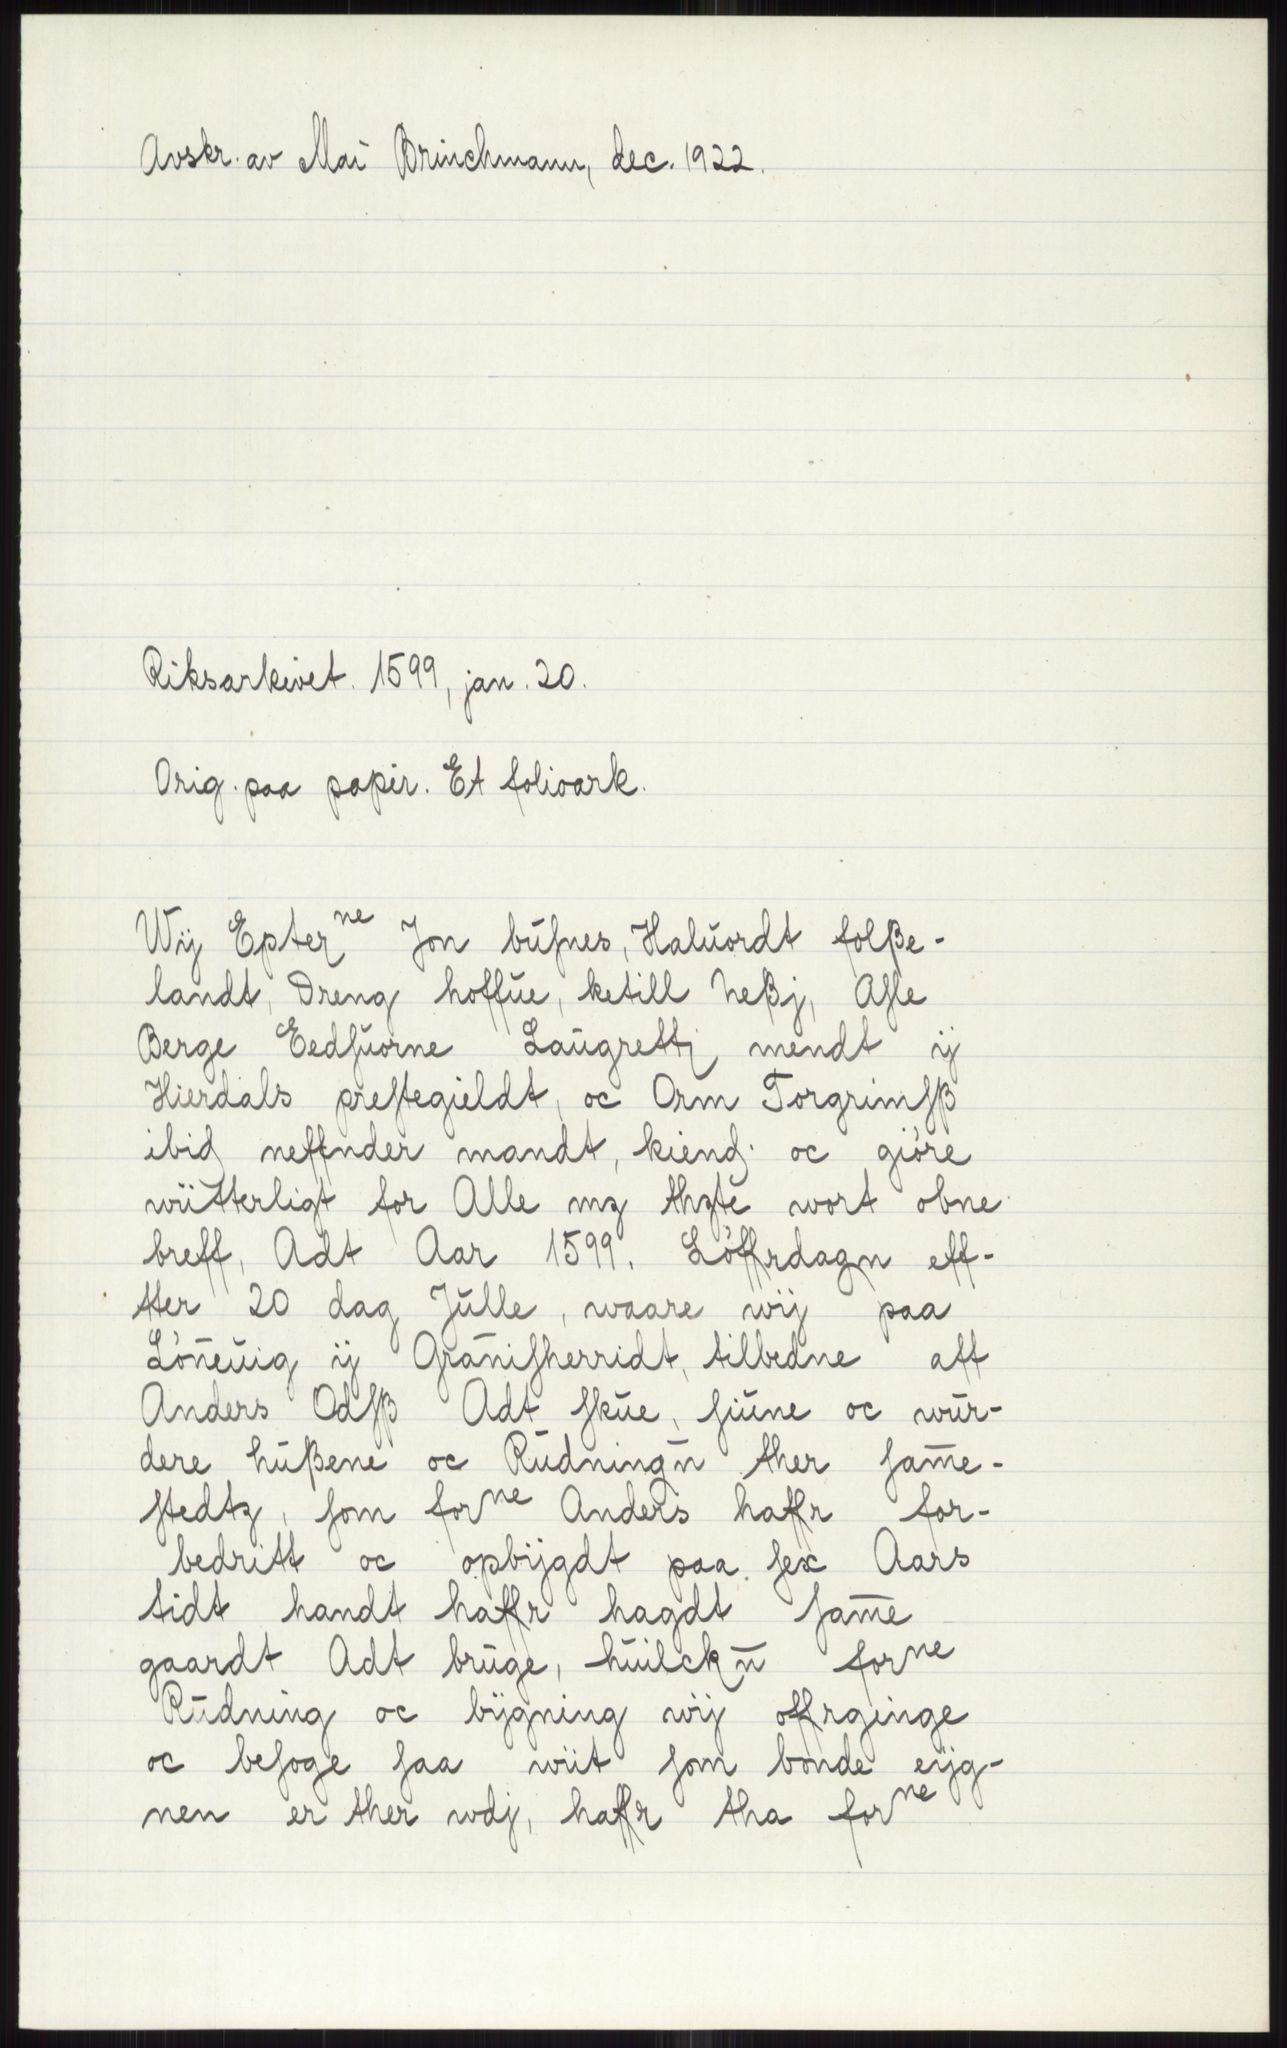 Avskr. av Mai Brinchmann, dec. 1922.
Riksarkivet. 1599, jan. 20.
Orig. paa papir. Et folioark.
Wij Epterne Jon bufnes, Haluordt folße-
landt, Dreng hoffue, ketill Neßj, Asle
Berge Eedsuorne Laugrettj mendt ij
Hierdals prestegieldt, oc Orm Torgrimsß
ibid neffnder mandt, kiend oc giöre
wütterligt for Alle mz thzte wort obne
breff, Adt Aar 1599. Löffrdagn eff-
tter 20 dag Julle, waare wij paa
Löneuig ij Granisherridt, tilbedne aff
Anders Odsß Adt skue, siune oc wur-
dere hußene oc Rudningn ther same-
stedtz, som forne Anders haffr for-
bedritt oc opbijgdt paa sex Aars
tidt handt haffr hagdt same
gaardt Adt bruge, huilckn forne
Rudning oc bijgning wij offrginge
oc besoge saa wiit som bonde eijg-
nen er ther wdj, haffr tha forne